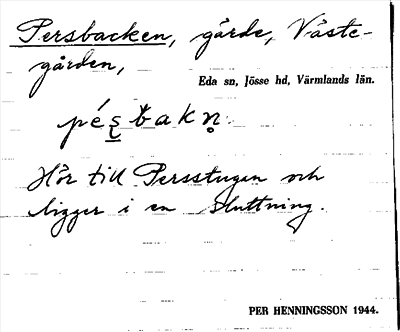 Persbacken, gärde, Väste-
gården,
Eda sn, Jösse hd, Värmlands län.
pésbakn.
Hör till Persstugan och
ligger i en sluttning.
PER HENNINGSSON 1944.